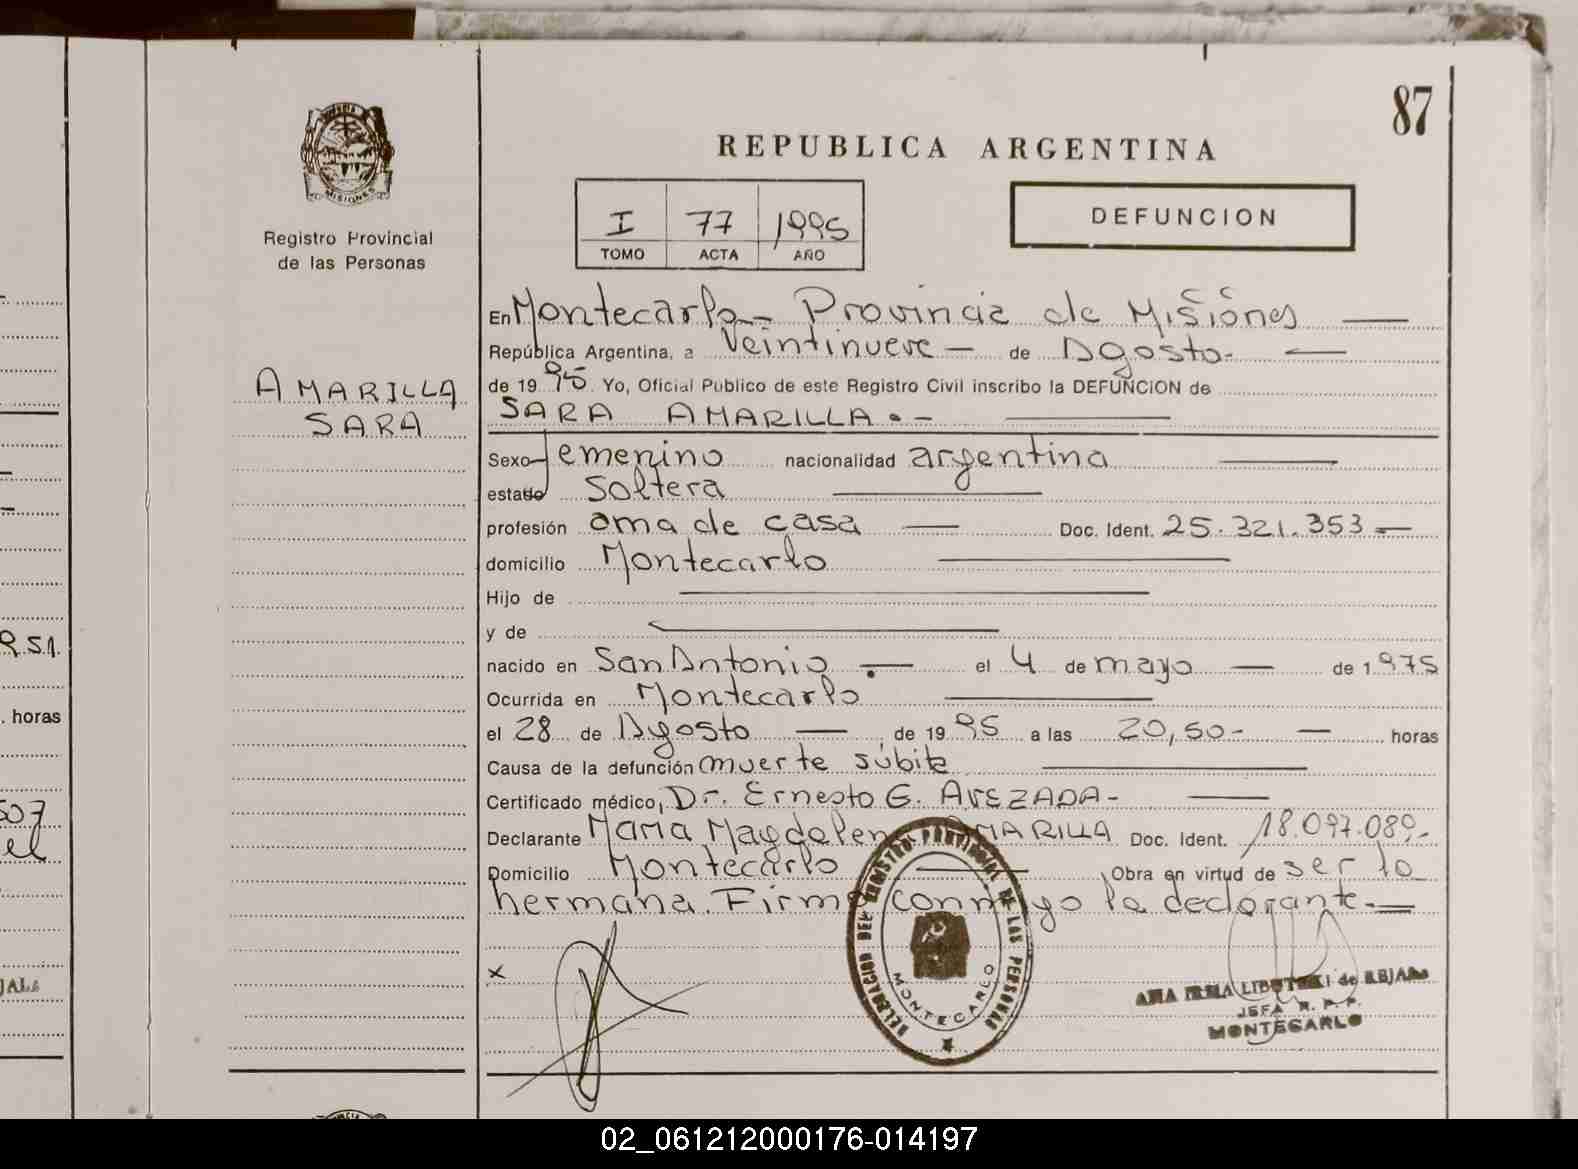 87
REPUBLICA ARGENTINA
MISIONES
Registro Provincial
de las Personas
I 77 1995
TOMO ACTA AÑO
DEFUNCION
En Montecarlo - Provincia de Misiones
República Argentina, a Veintinueve de Agosto
de 1995 Yo, Oficial Publico de este Registro Civil inscribo la DEFUNCION de
AMARILLA
SARA
SARA AMARILLA.-
Sexo Femenino nacionalidad argentina
estado Soltera
profesión ama de casa Doc. Ident. 25.321.353
domicilio Montecarlo
Hijo de
y de
nacido en San Antonio.- el 4 de mayo de 1975
Ocurrida en Montecarlo
el 28 de Agosto de 1995 a las 20,50- horas
Causa de la defunción muerte súbita
Certificado médico, Dr. Ernesto G. AVEZADA-
Declarante María Magdalen AMARILLA Doc. Ident. 18.097.089.-
Domicilio Montecarlo Obra en virtud de ser la
hermana. Firma conmigo la declarante.-
x
DELEGACION DEL REGISTRO PROVINCIAL DE LAS PERSONAS
MONTECARLO
ANA IRMA de
JEFA R. P. P.
MONTECARLO
RSI.
. horas
507
el
02_061212000176-014197